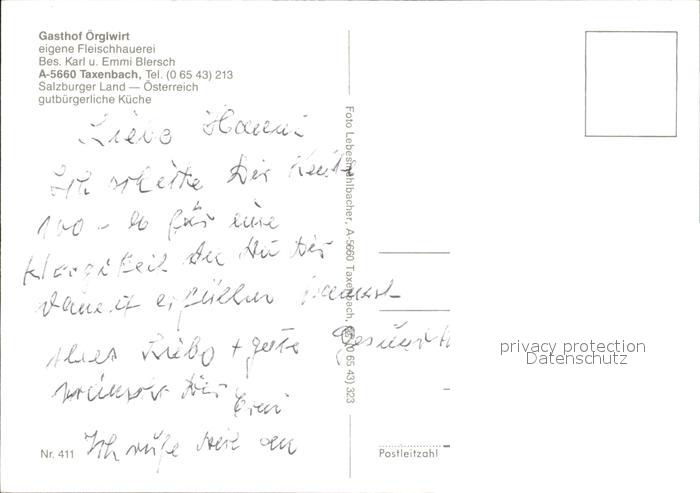 Gasthof Örglwirt
eigene Fleischhauerei
Bes. Karl u. Emmi Blersch
A-5660 Taxenbach, Tel. (0 65 43) 213
Salzburger Land — Österreich
gutbürgerliche Küche
Liebe Hanni
Ich schicke Dir heute
100 - für eine
Kleinigkeit die Du Dir
damit erfüllen kannst
Alles Liebe + gute Gesundh
wünscht Dir
Erni
Ich rufe Dich an
Nr. 411
Foto Lebesmühlbacher, A-5660 Taxenbach, (0 65 43) 323
privacy protection
Datenschutz
Postleitzahl